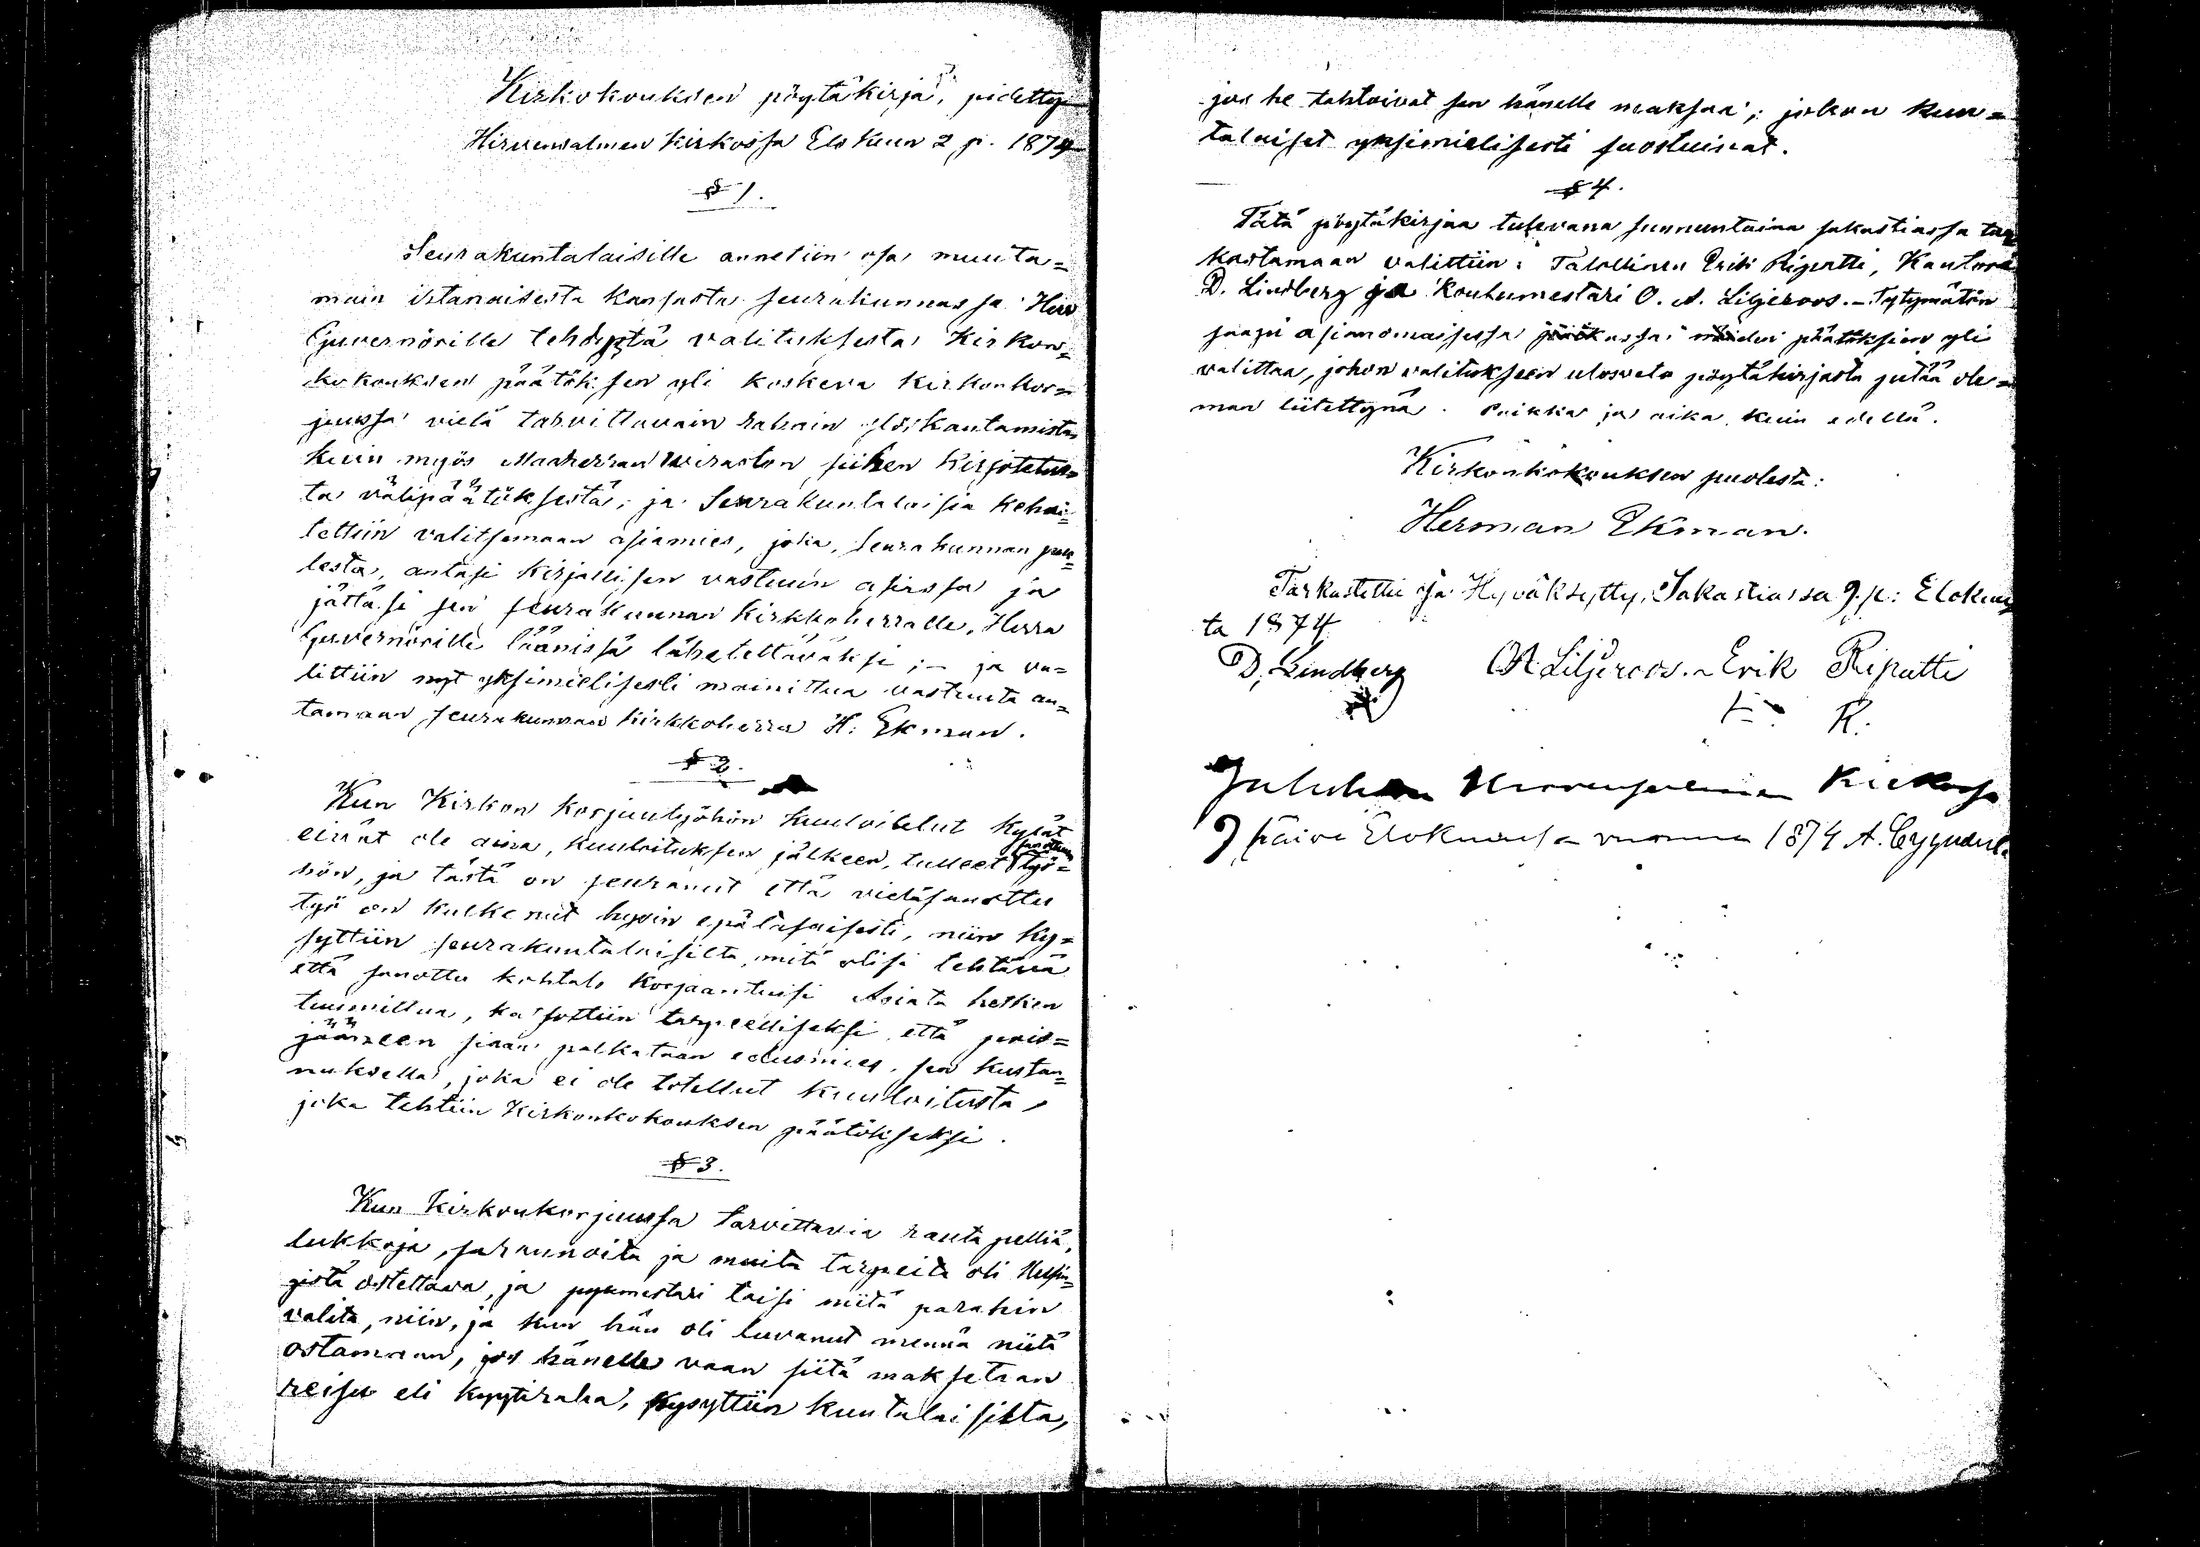 Kirkokouksen pöytäkirja, pidetty
Hirvensalmen Kirkossa Elo Kuun 2 p. 1874
§ 1.
Seurakuntalaisille annetiin osa muuta=
main istanaisesta kansasta seurakunnassa Herr
Guvernörille tehdystä valituksesta Kirkon=
kokouksen päätöksen yli koskeva kirkonkor=
juussa vielä tarvittavain rahain ylöskantamista
kuin myös Maaherran Wiraston siihen kirjotetus=
ta välipäätöksestä; ja Seurakuntalaisia kehoi=
tettiin valitsemaan asiamies, joka, Seurakunnan puo=
lesta, antasi kirjallisen vastuun asiassa ja
jättäsi sen seurakunnan Kirkkoherralle, Herra
Guvernörille läänissä lähetettäväksi; – ja va=
littiin nyt yksimielisesti mainittua vastuuta an=
tamaan seurakunnan kirkkoherra H. Ekman.
§ 2.
Kun Kirkon korjuutyöhön kuuloitelut kylät
eivät ole aina, kuuloituksen jälkeen, tulleet työ=
hön, ja tästä on seurannut että vietäsanottu
työ on kulkenut hyvin epätasaisesti, niin ky=
syttiin seurakuntalaisilta, mitä olisi tehtävä
että sanottu kohtalo korjaantuisi Asiata hetken
tuumittua, katsottiin tarpeelliseksi, että pois=
jääneen siaan palkataan edusmies, sen kustan=
nuksella, joka ei ole totellut kuuloitusta,
joka tehtiin Kirkonkokouksen päätökseksi.
§ 3.
Kun Kirkonkorjuussa tarvittavia rauta peltiä,
lukkoja, saraunoita ja muita tarpeita oli Helsin=
gistä ostettava, ja pyymestari taisi niitä parahin
valita, niin, ja kun hän oli luvanut mennä niitä
ostamaan, jos hänelle vaan siitä maksetaan
reisu eli kyytiraha, kysyttiin kuntalaisilta,
jos he tahtoivat sen hänelle maksaa; johon kun=
talaiset yksimielisesti suostuivat.
§ 4.
Tätä pöytäkirjaa tulevana sunnuntaina sakastiassa tar
kastamaan valittiin: Talollinen Erik Ripatti, Kanttori
D. Lindberg ja Kouhumestari O. A. Liljeroos. – Tytymätön
saapi asianomaisessa näiden päätöksien yli
valittaa, johon valitukseen ulosveto pöytäkirjasta pitää ole=
man liitettynä. Paikka ja aika kuin edellä.
Kirkonkokouksen puolesta:
Herman Ekman.
Tarkastettu ja Hyväksytty, Sakastiassa 9. p: Elokuu
ta 1874
D. Lindberg OA Liljeroos. Erik Ripatti
R.
Julistettu Hirvensalmen Kirkossa
9 päivä Elokuussa vuonna 1874 A. Cygnæus